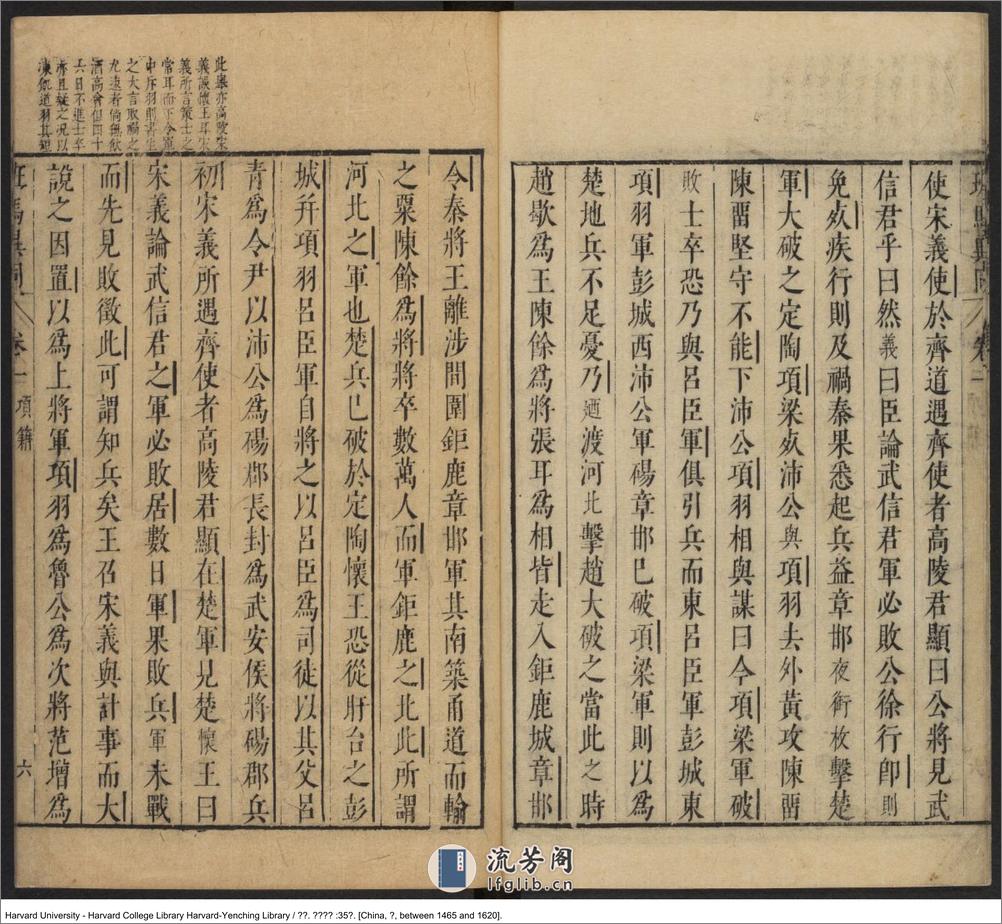 使宋義使於齊道遇齊使者高陵君顯曰公將見武
信君乎曰然義曰臣論武信君軍必敗公徐行卽則
免死疾行則及禍秦果悉起兵益章邯夜銜枚擊楚
軍大破之定陶項梁死沛公與項羽去外黃攻陳畱
陳畱堅守不能下沛公項羽相與謀曰今項梁軍破
敗士卒恐乃與呂臣軍俱引兵而東呂臣軍彭城東
項羽軍彭城西沛公軍碭章邯已破項梁軍則以爲
楚地兵不足憂乃廼渡河北擊趙大破之當此之時
趙歇爲王陳餘爲將張耳爲相皆走入鉅鹿城章邯
此舉亦高陵宋
義諛懷王耳宋
義所言策士之
常耳而下令軍
中斥羽則書生
之大言取禍之
尤速者倘無飲
酒高會但四十
六日不進士卒
亦且疑之況以
凍飢道羽其短
令秦將王離涉間圍鉅鹿章邯軍其南築甬道而輸
之粟陳餘爲將將卒數萬人而軍鉅鹿之北此所謂
河北之軍也楚兵已破於定陶懷王恐從盱台之彭
城幷項羽呂臣軍自將之以呂臣爲司徒以其父呂
青爲令尹以沛公爲碭郡長封爲武安侯將碭郡兵
初宋義所遇齊使者高陵君顯在楚軍見楚懷王曰
宋義論武信君之軍必敗居數日軍果敗兵軍未戰
而先見敗徵此可謂知兵矣王召宋義與計事而大
說之因置以爲上將軍項羽爲魯公爲次將范增爲
班馬異同 卷一 項籍 六
流芳阁
lfglib.cn
Harvard University - Harvard College Library Harvard-Yenching Library / ??. ???? :35?. [China, ?, between 1465 and 1620].